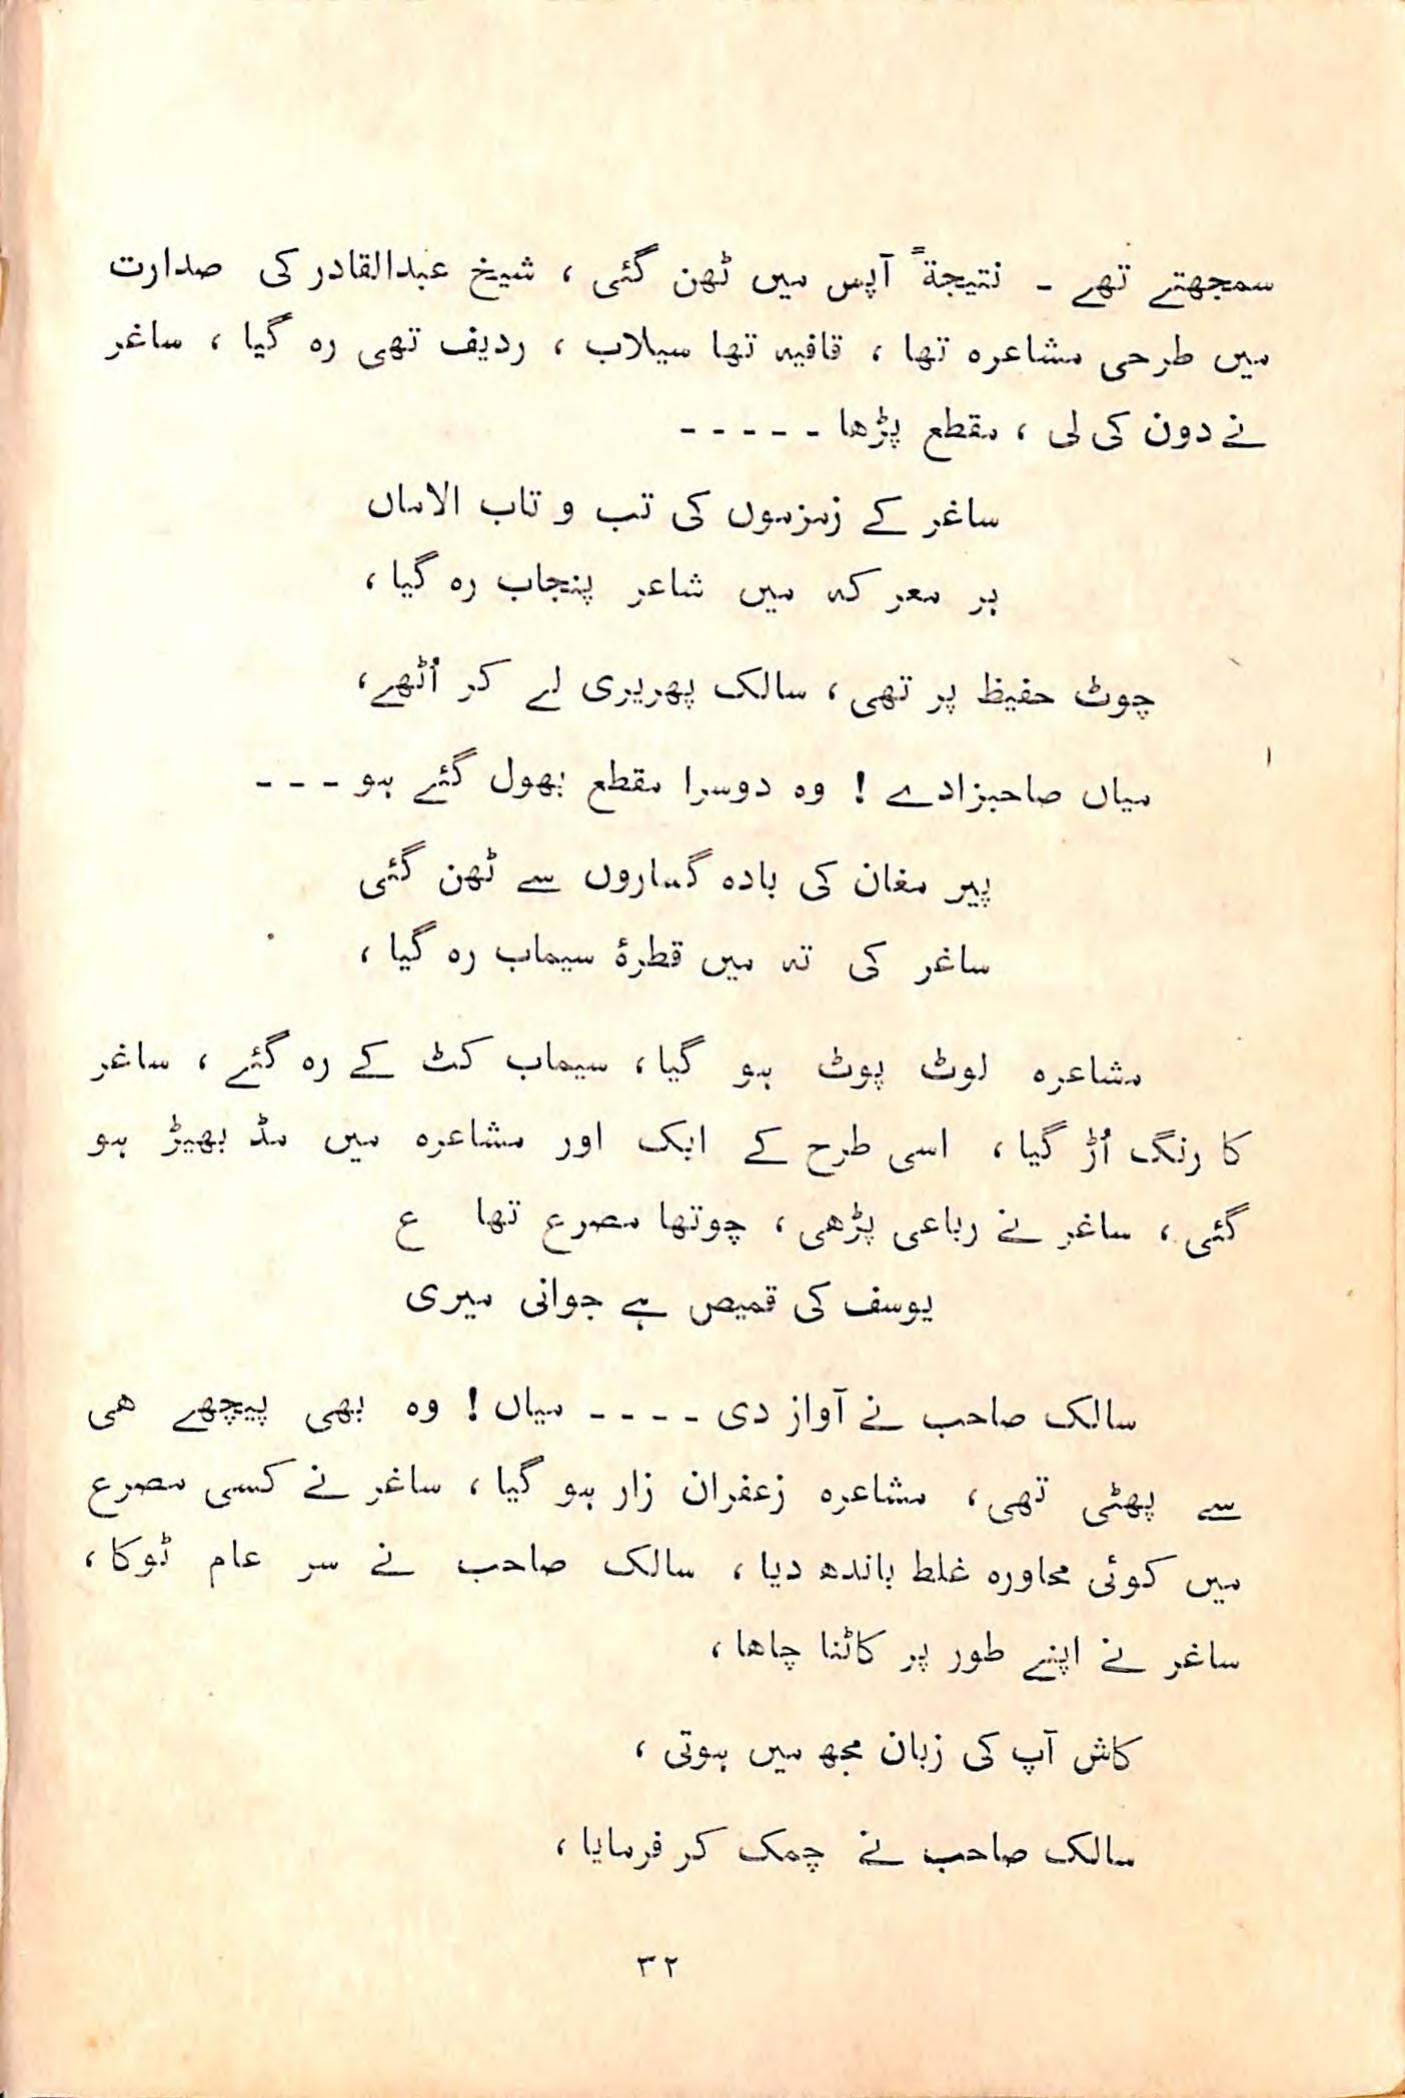 سمجھتے تھے ۔ نتیجۃً آپس میں ٹھن گئی ، شیخ عبدالقادر کی صدارت
میں طرحی مشاعرہ تھا ، قافیہ تھا سیلاب ، ردیف تھی رہ گیا ، ساغر
نے دون کی لی ، مقطع پڑھا - - - - -
ساغر کے زمزموں کی تب و تاب الاماں
ہر معرکہ میں شاعر پنجاب رہ گیا ،
چوٹ حفیظ پر تھی ، سالک پھریری لے کر اُٹھے ،
میاں صاحبزادے ! وہ دوسرا مقطع بھول گئے ہو - - -
پیر مغان کی بادہ گساروں سے ٹھن گئی
ساغر کی تہ میں قطرۂ سیماب رہ گیا ،
مشاعرہ لوٹ پوٹ ہو گیا ، سیماب کٹ کے رہ گئے ، ساغر
کا رنگ اُڑ گیا ، اسی طرح کے ایک اور مشاعرہ میں مڈ بھیڑ ہو
گئی ، ساغر نے رباعی پڑھی ، چوتھا مصرع تھا ع
یوسف کی قمیص ہے جوانی میری
سالک صاحب نے آواز دی - - - - میاں ! وہ بھی پیچھے ھی
سے پھٹی تھی ، مشاعرہ زعفران زار ہو گیا ، ساغر نے کسی مصرع
میں کوئی محاورہ غلط باندھ دیا ، سالک صاحب نے سر عام ٹوکا ،
ساغر نے اپنے طور پر کاٹنا چاھا ،
کاش آپ کی زبان مجھ میں ہوتی ،
سالک صاحب نے چمک کر فرمایا ،
۳۲